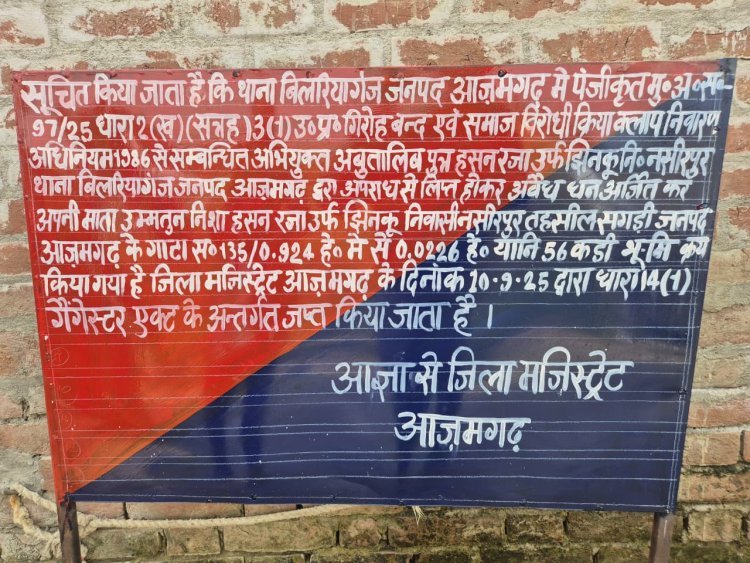 सूचित किया जाता है कि थाना बिलरियागंज जनपद आज़मगढ़ मे पंजीकृत मु० अ० स०-
97/25 धारा 2 (ख) (सत्रह) 3(1) उ० प्र० गिरोह बन्द एवं समाज विरोधी क्रिया क्लाप निवारण
अधिनियम 1986 से सम्बन्धित अभियुक्त अबुतालिब पुत्र हसन रजा उर्फ झिनकू नि० नसीरपुर
थाना बिलरियागंज जनपद आज़मगढ़ द्वारा अपराध से लिप्त होकर अवैध धन अर्जित कर
अपनी माता उम्मतुन निशा हसन रजा उर्फ झिनकू निवासी नसीरपुर तहसील सगड़ी जनपद
आज़मगढ़ के गाटा स० 135/0.924 है० मे से 0.0226 है० यानि 56 कडी भूमि क्रय
किया गया है जिला मजिस्ट्रेट आज़मगढ़ के दिनांक 10.9.25 द्वारा धारा 14(1)
गैंगेस्टर एक्ट के अन्तर्गत जप्त किया जाता है ।
आज्ञा से जिला मजिस्ट्रेट
आज़मगढ़